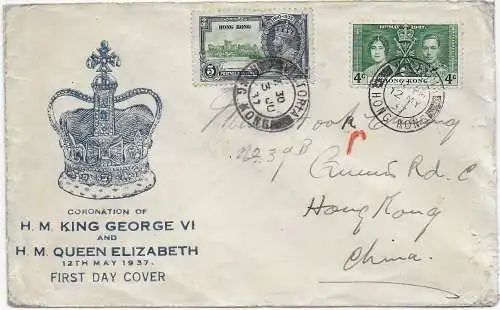 CORONATION OF
H. M. KING GEORGE VI
AND
H. M. QUEEN ELIZABETH
12TH MAY 1937.
FIRST DAY COVER
3
VICTORIA
30 JU
37
HONG KONG
4c HONG KONG 4c
12 MY
37
HONG KONG
Cook
No. 39B
Queen's Rd. C
Hong Kong
China.